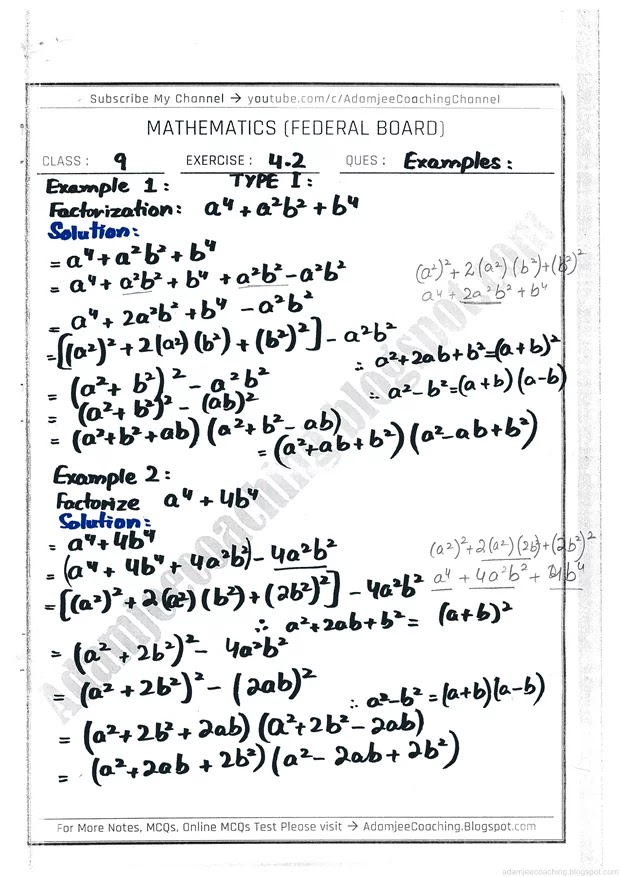 Subscribe My Channel → youtube.com/c/AdamjeeCoachingChannel
MATHEMATICS (FEDERAL BOARD)
CLASS : 9 EXERCISE : 4.2 QUES : Examples:
Example 1: TYPE I:
Factorization: a⁴ + a²b² + b⁴
Solution:
= a⁴ + a²b² + b⁴
= a⁴ + a²b² + b⁴ + a²b² - a²b²
(a²)² + 2(a²)(b²) + (b²)²
a⁴ + 2a²b² + b⁴
= a⁴ + 2a²b² + b⁴ - a²b²
= [(a²)² + 2(a²)(b²) + (b²)²] - a²b²
∴ a² + 2ab + b² = (a+b)²
= (a² + b²)² - a²b²
∴ a² - b² = (a+b)(a-b)
= (a² + b²)² - (ab)²
= (a² + b² + ab)(a² + b² - ab)
= (a² + ab + b²)(a² - ab + b²)
Example 2:
Factorize a⁴ + 4b⁴
Solution:
= a⁴ + 4b⁴
= (a⁴ + 4b⁴ + 4a²b²) - 4a²b²
(a²)² + 2(a²)(2b²) + (2b²)²
a⁴ + 4a²b² + 4b⁴
= [(a²)² + 2(a²)(b²) + (2b²)²] - 4a²b²
∴ a² + 2ab + b² = (a+b)²
= (a² + 2b²)² - 4a²b²
= (a² + 2b²)² - (2ab)²
∴ a² - b² = (a+b)(a-b)
= (a² + 2b² + 2ab)(a² + 2b² - 2ab)
= (a² + 2ab + 2b²)(a² - 2ab + 2b²)
For More Notes, MCQs, Online MCQs Test Please visit → AdamjeeCoaching.Blogspot.com
Adamjeecoaching.blogspot.com
adamjeecoaching.blogspot.com